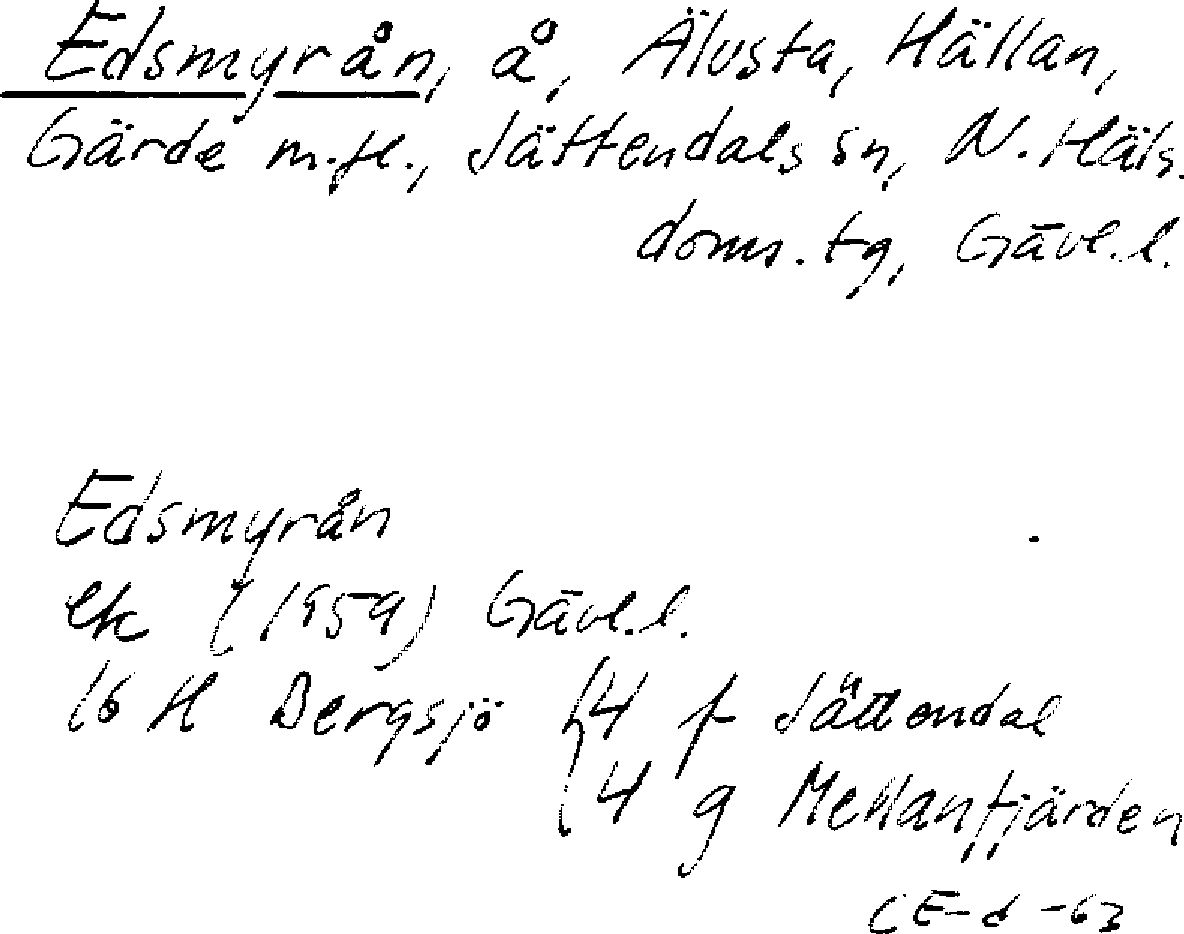 Edsmyrån, å, Älvsta, Hällan,
Gärde m.fl., Jättendals sn, N. Häls.
doms. tg, Gävl. l.
Edsmyrån
ek (1959) Gävl. l.
16 H Bergsjö { 4 f Jättendal
4 g Mellanfjärden
CE-d -63